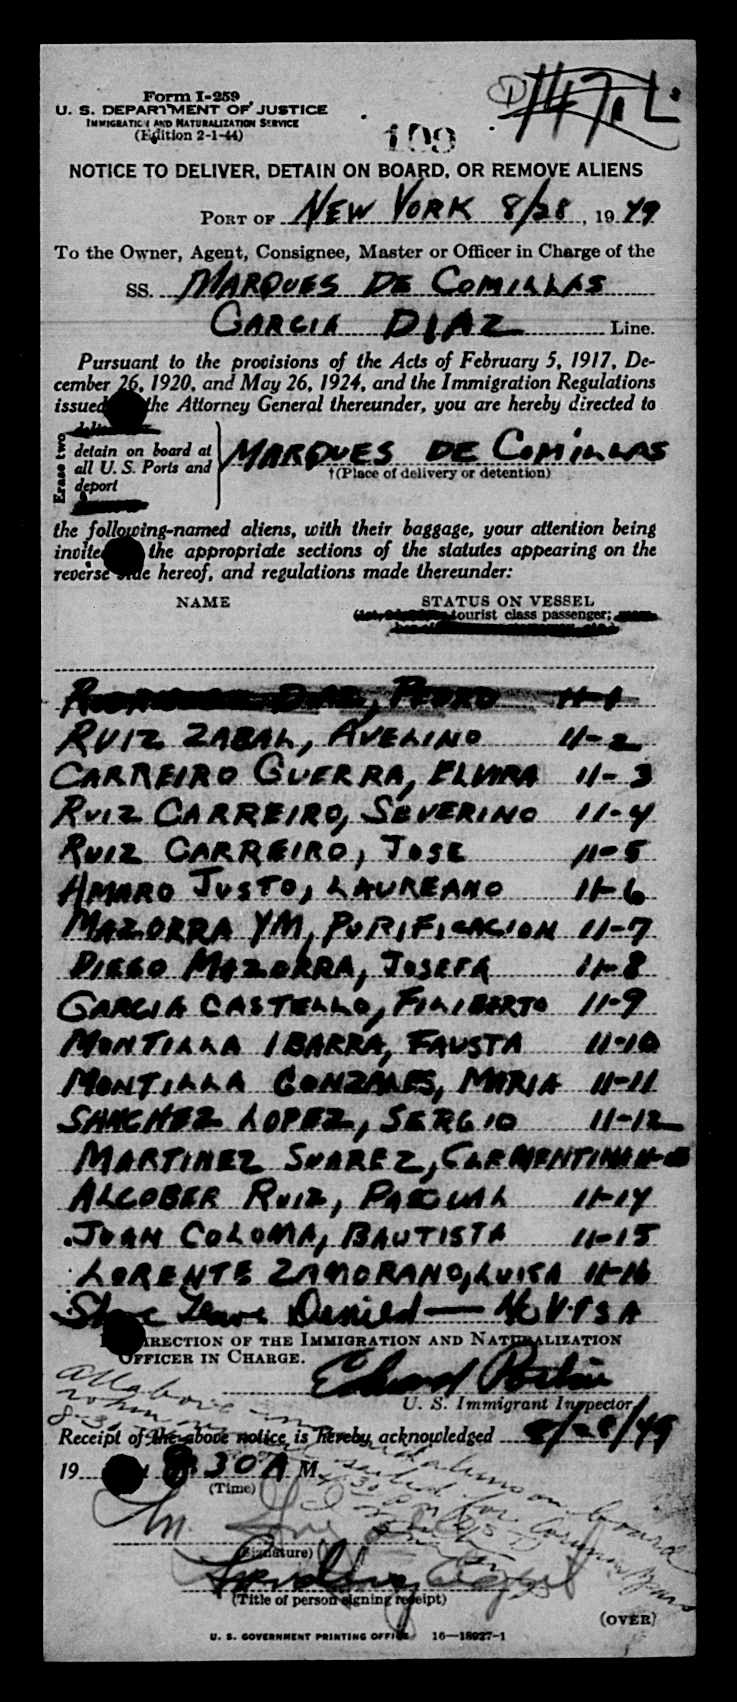 Form I-259
U. S. DEPARTMENT OF JUSTICE
IMMIGRATION AND NATURALIZATION SERVICE
(Edition 2-1-44)
NOTICE TO DELIVER, DETAIN ON BOARD, OR REMOVE ALIENS
PORT OF NEW YORK 8/28, 1949
To the Owner, Agent, Consignee, Master or Officer in Charge of the
SS. MARQUES DE COMILLAS
GARCIA DIAZ Line.
Pursuant to the provisions of the Acts of February 5, 1917, De-
cember 26, 1920, and May 26, 1924, and the Immigration Regulations
issued the Attorney General thereunder, you are hereby directed to
Erase two
detain on board at
all U. S. Ports and
deport
MARQUES DE COMILLAS
†(Place of delivery or detention)
the following-named aliens, with their baggage, your attention being
invited the appropriate sections of the statutes appearing on the
reverse side hereof, and regulations made thereunder:
NAME STATUS ON VESSEL
tourist class passenger;
DIAZ, PEDRO 11-1
RUIZ ZABAL, AVELINO 11-2
CARREIRO GUERRA, ELVIRA 11-3
RUIZ CARREIRO, SEVERINO 11-4
RUIZ CARREIRO, JOSE 11-5
AMARO JUSTO, LAUREANO 11-6
MAZORRA YM, PURIFICACION 11-7
DIEGO MAZORRA, JOSEFA 11-8
GARCIA CASTELLO, FILIBERTO 11-9
MONTILLA IBARRA, FAUSTA 11-10
MONTILLA GONZALES, MARIA 11-11
SANCHEZ LOPEZ, SERGIO 11-12
MARTINEZ SUAREZ, CLEMENTINA
ALCOBER RUIZ, PASQUAL 11-14
JUAN COLOMA, BAUTISTA 11-15
LORENTE ZAMORANO, LUISA 11-16
Shore Leave Denied — NO VISA
DIRECTION OF THE IMMIGRATION AND NATURALIZATION
OFFICER IN CHARGE.
U. S. Immigrant Inspector
Receipt of the above notice is hereby acknowledged 8/28/49
19 8:30 A M.
(Time)
(Signature)
(Title of person signing receipt)
(OVER)
U. S. GOVERNMENT PRINTING OFFICE 16—18027-1